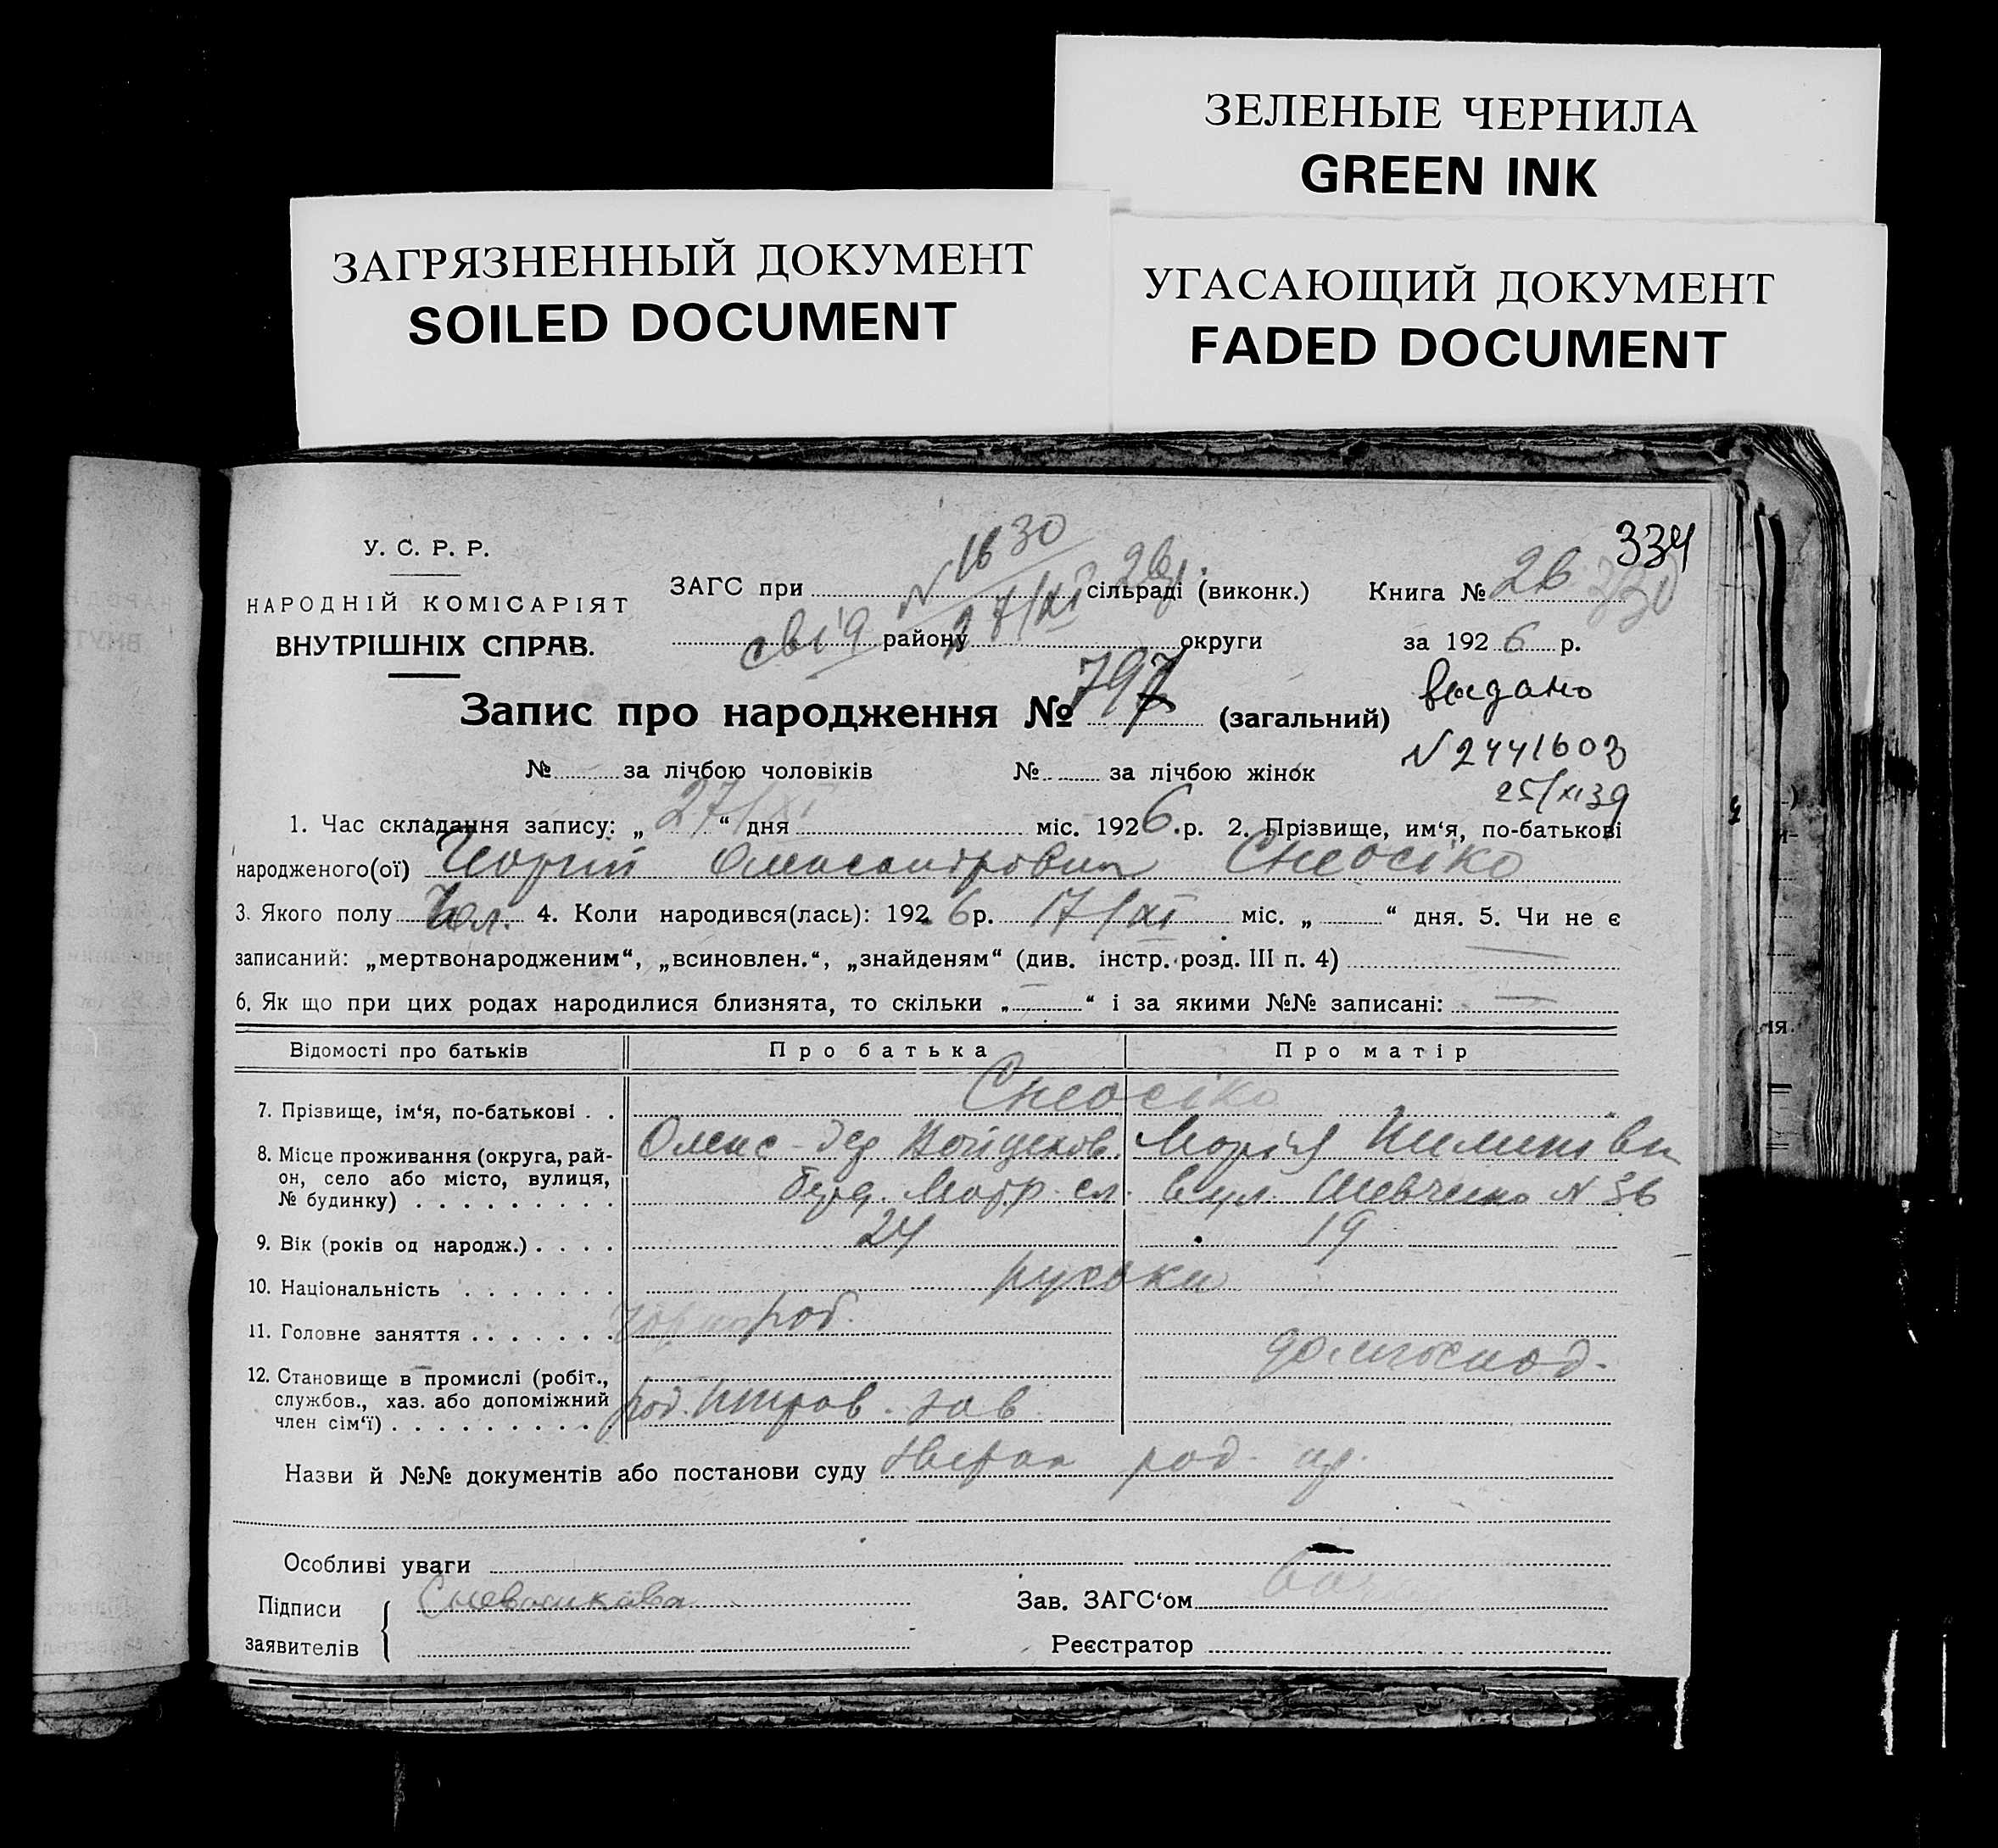 ЗЕЛЕНЫЕ ЧЕРНИЛА
GREEN INK
ЗАГРЯЗНЕННЫЙ ДОКУМЕНТ
SOILED DOCUMENT
УГАСАЮЩИЙ ДОКУМЕНТ
FADED DOCUMENT
334
У. С. Р. Р.
НАРОДНІЙ КОМІСАРІЯТ
ВНУТРІШНІХ СПРАВ.
N 1630
27/XI 26р.
ЗАГС при сільраді (виконк.)
району округи
Книга № 26
за 1926 р.
Запис про народження № 797 (загальний)
выдано
N 2441603
25/XI 39
№ за лічбою чоловіків № за лічбою жінок
1. Час складання запису: „ 27/XI “ дня міс. 1926. р. 2. Прізвище, им‘я, по-батькові
народженого(ої) Георгій Олександрович
3. Якого полу Чол. 4. Коли народився(лась): 1926 р. 17/XI міс. „ “ дня. 5. Чи не є
записаний: „мертвонародженим“, „всиновлен.“, „знайденям“ (див. інстр. розд. III п. 4)
6. Як що при цих родах народилися близнята, то скільки „ “ і за якими №№ записані:
Відомості про батьків Про батька Про матір
7. Прізвище, ім‘я, по-батькові . .
8. Місце проживання (округа, рай-
он, село або місто, вулиця,
№ будинку) . . . . . . . . .
Марія
вул. Шевченко N 36
9. Вік (років од народж.) . . . . 24 19
10. Національність . . . . . . . руськи
11. Головне заняття . . . . . . . чорнороб.
домгоспод.
12. Становище в промислі (робіт.,
службов., хаз. або допоміжний
член сім‘ї) . . . . . . . . . .
роб. Петров. зав.
Назви й №№ документів або постанови суду
Особливі уваги
Підписи
заявителів
Зав. ЗАГС‘ом
Реєстратор